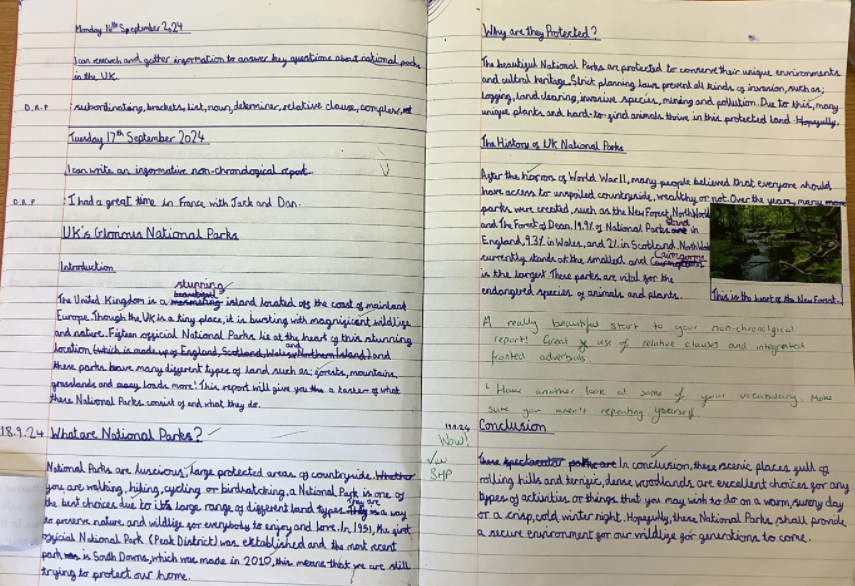 Monday 16th September 2024
I can research and gather information to answer key questions about national parks
in the UK.
D.R.P : subordinating, brackets, list, noun, determiner, relative clause, complex,
Tuesday 17th September 2024
I can write an informative non-chronological report.
D.R.P : I had a great time in France with Jack and Dan.
UK's Glorious National Parks
Introduction
stunning
The United Kingdom is a island located off the coast of mainland
Europe. Though the UK is a tiny place, it is bursting with magnificent wildlife
and nature. Fifteen official National Parks lie at the heart of this stunning
location (which is made up of England, Scotland, Wales and Northern Ireland) and
these parks have many different types of land such as; forests, mountains,
grasslands and many loads more! This report will give you a taster of what
these National Parks consist of and what they do.
18.9.24 What are National Parks?
National Parks are luscious, large protected areas of countryside. Whether
you are walking, hiking, cycling or birdhatching, a National Park is one of
the best choices due to its large range of different land types. They are a way
to preserve nature and wildlife for everybody to enjoy and love. In 1951, the first
official National Park (Peak District) was established and the most recent
park is South Downs, which was made in 2010, this means that we are still
trying to protect our home.
Why are they Protected?
The beautiful National Parks are protected to conserve their unique environments
and cultral heritage. Strict planning laws prevent all kinds of invasion, such as;
logging, land clearing, invasive species, mining and pollution. Due to this, many
unique plants and hard-to-find animals thrive in this protected land. Hopefully,
The History of UK National Parks
After the horrors of World War II, many people believed that everyone should
have access to unspoiled countryside, wealthy or not. Over the years, many more
parks were created, such as the New Forest,
and The Forest of Dean. 19.9% of National Parks stand in
England, 9.3% in Wales, and 2% in Scotland.
currently stands at the smallest and Cairngorms
is the largest. These parks are vital for the
endangered species of animals and plants.
This is the heart of the New Forest.
A really beautiful start to your non-chronological
report! Great use of relative clauses and integrated
fronted adverbials.
Have another look at some of your vocabulary. Make
sure you aren't repeating yourself.
19.9.24 Conclusion
Wow!
SHP
In conclusion, these scenic places full of
rolling hills and terrific, dense woodlands are excellent choices for any
types of activities or things that you may wish to do on a warm, sunny day
or a crisp, cold winter night. Hopefully, these National Parks shall provide
a secure environment for our wildlife for generations to come.